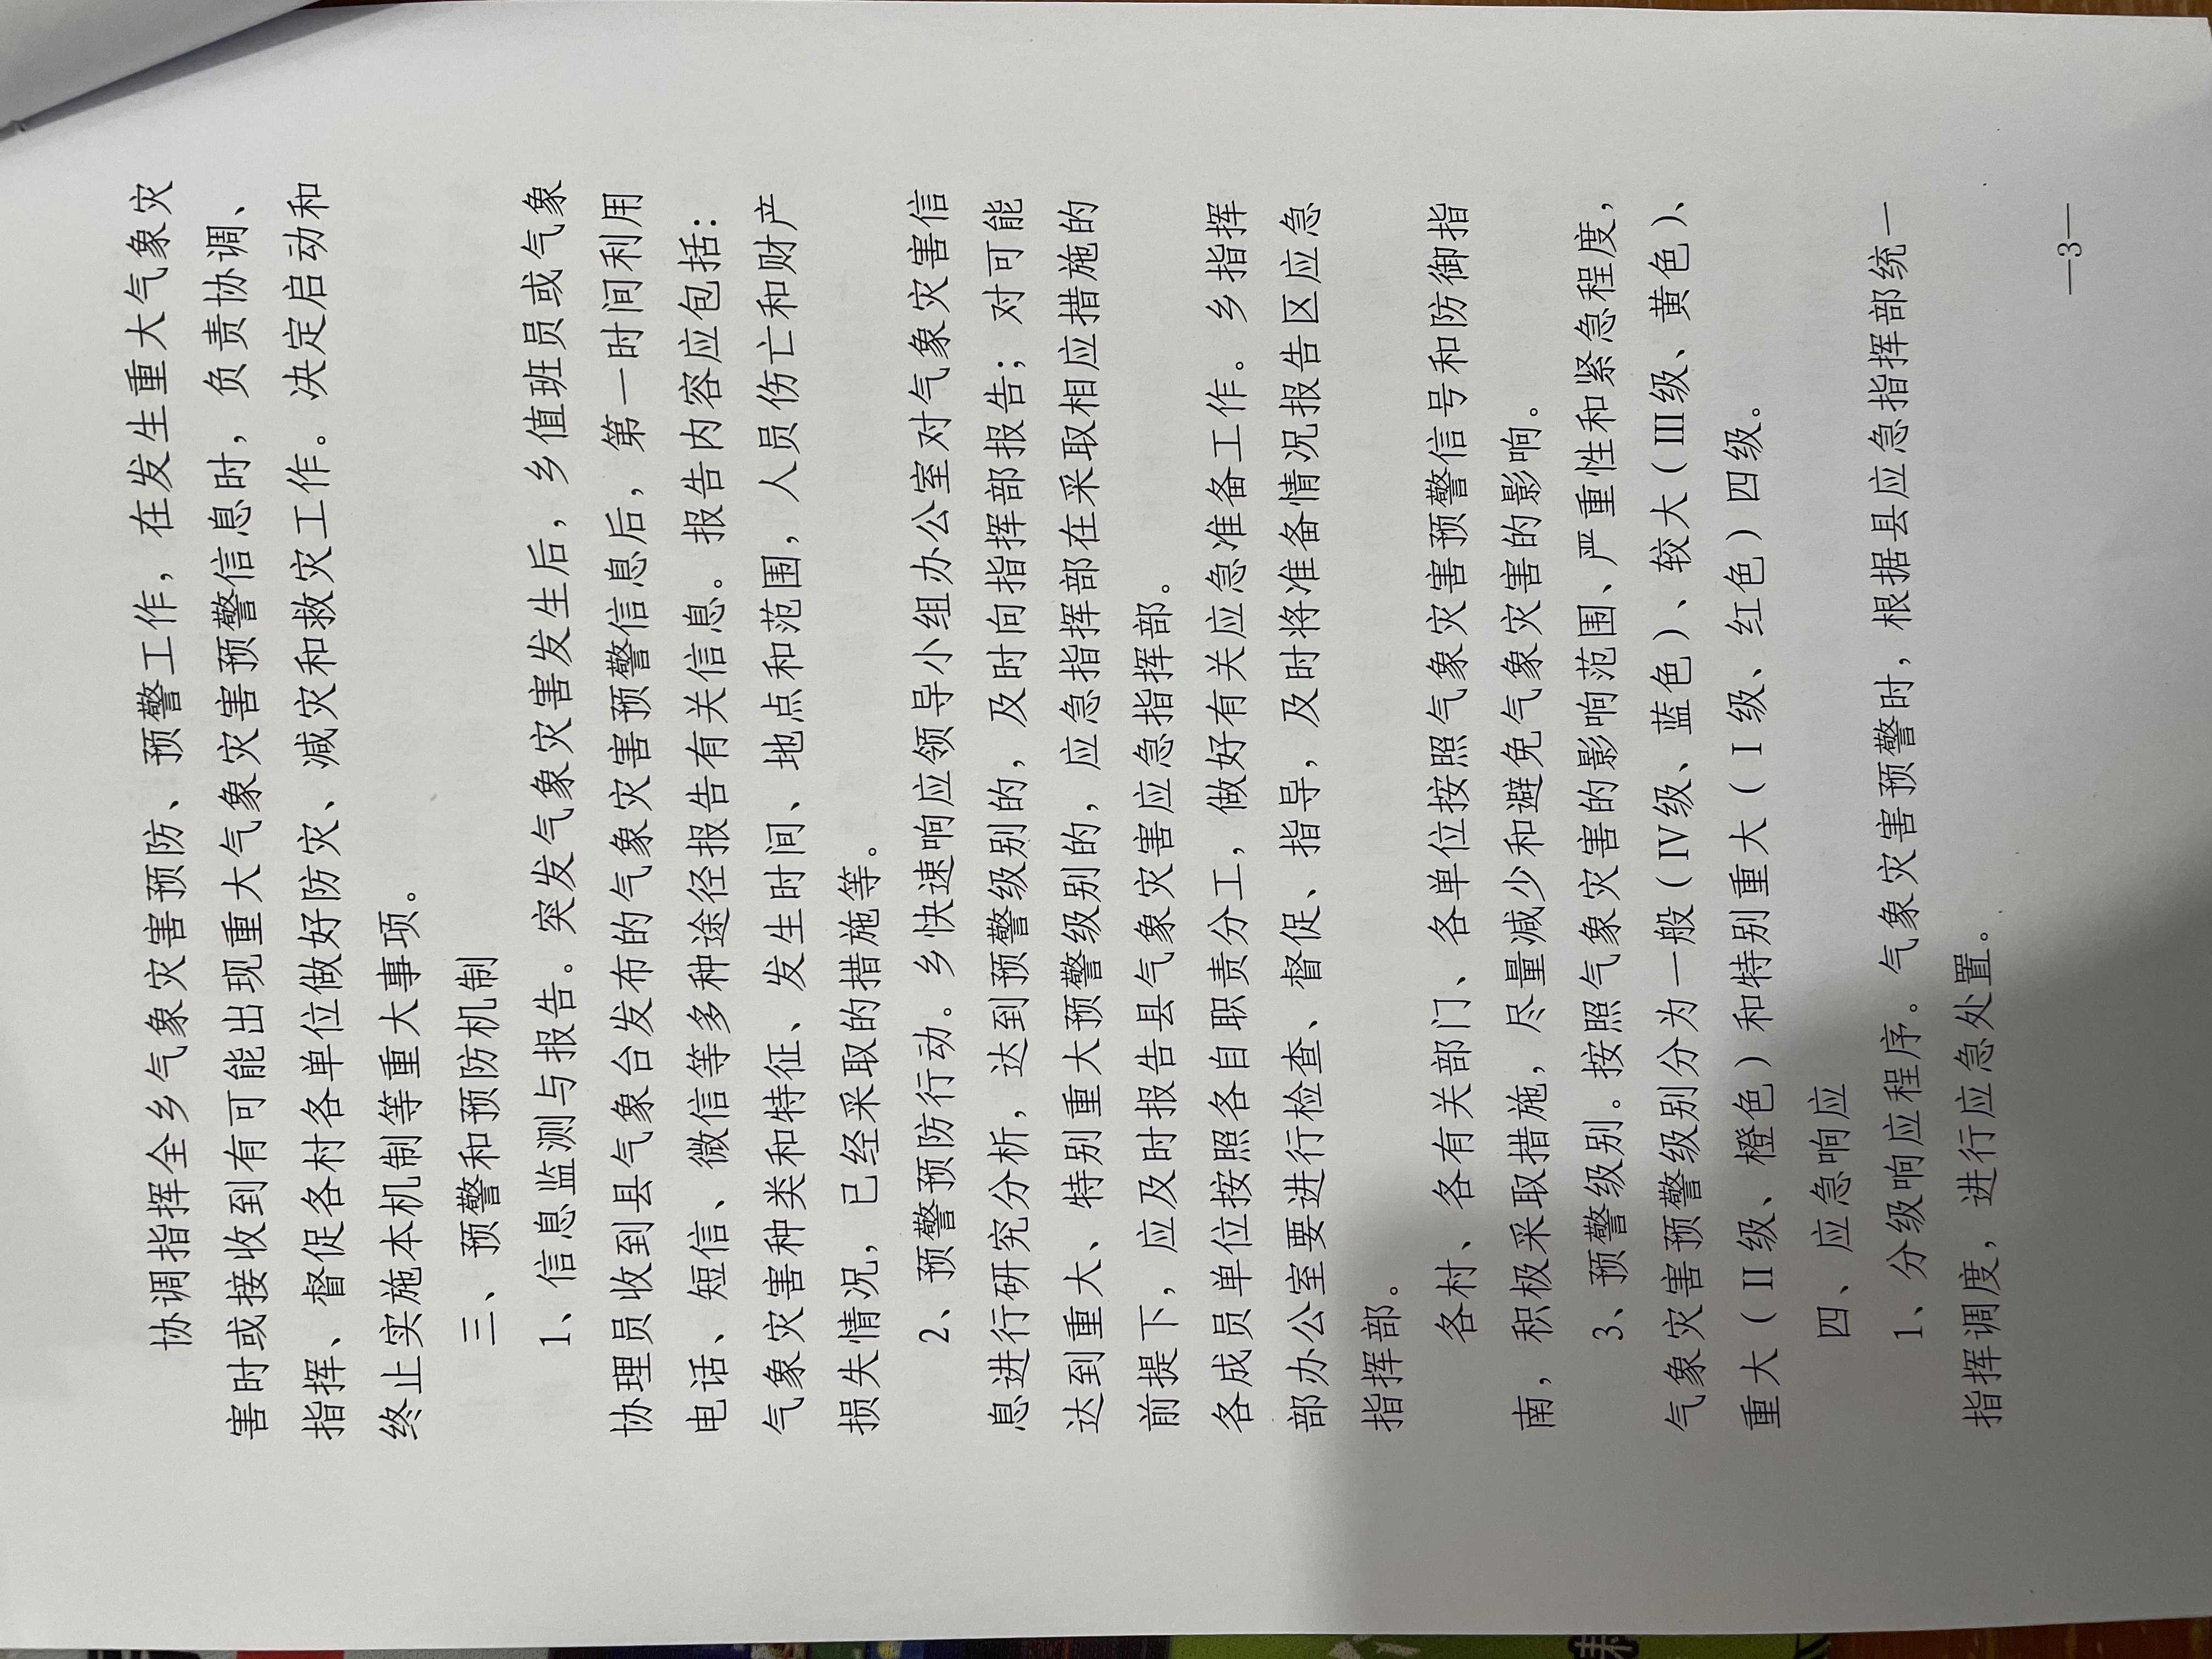 协调指挥全乡气象灾害预防、预警工作，在发生重大气象灾
害时或接收到有可能出现重大气象灾害预警信息时，负责协调、
指挥、督促各村各单位做好防灾、减灾和救灾工作。决定启动和
终止实施本机制等重大事项。
三、预警和预防机制
1、信息监测与报告。突发气象灾害发生后，乡值班员或气象
协理员收到县气象台发布的气象灾害预警信息后，第一时间利用
电话、短信、微信等多种途径报告有关信息。报告内容应包括：
气象灾害种类和特征、发生时间、地点和范围，人员伤亡和财产
损失情况，已经采取的措施等。
2、预警预防行动。乡快速响应领导小组办公室对气象灾害信
息进行研究分析，达到预警级别的，及时向指挥部报告；对可能
达到重大、特别重大预警级别的，应急指挥部在采取相应措施的
前提下，应及时报告县气象灾害应急指挥部。
各成员单位按照各自职责分工，做好有关应急准备工作。乡指挥
部办公室要进行检查、督促、指导，及时将准备情况报告区应急
指挥部。
各村、各有关部门、各单位按照气象灾害预警信号和防御指
南，积极采取措施，尽量减少和避免气象灾害的影响。
3、预警级别。按照气象灾害的影响范围、严重性和紧急程度，
气象灾害预警级别分为一般（Ⅳ级、蓝色）、较大（Ⅲ级、黄色）、
重大（Ⅱ级、橙色）和特别重大（Ⅰ级、红色）四级。
四、应急响应
1、分级响应程序。气象灾害预警时，根据县应急指挥部统一
指挥调度，进行应急处置。
—3—